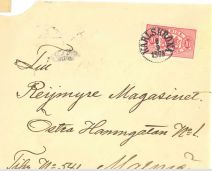 KARLSKRONA
Till
Reijmyre Magasinet.
Östra Hamngatan No 1.
Malmö